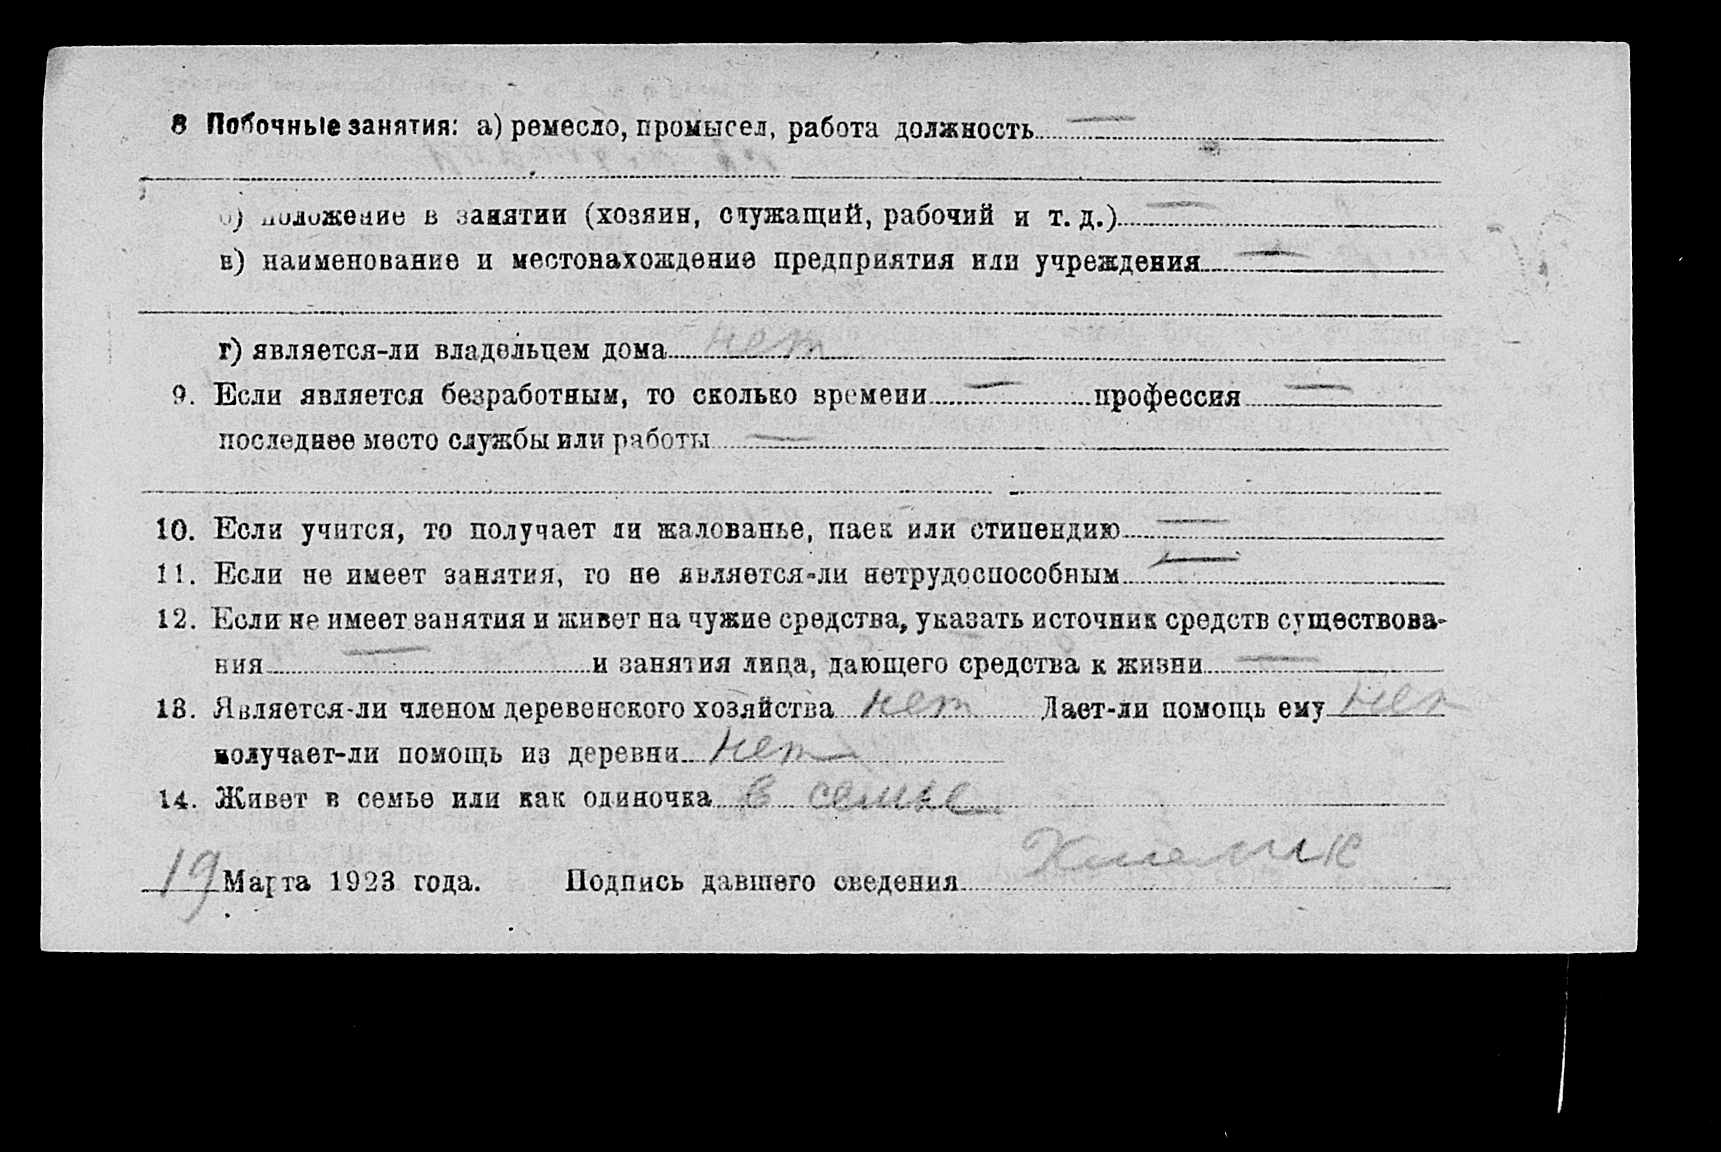 8 Побочные занятия: а) ремесло, промысел, работа должность —
б) положение в занятии (хозяин, служащий, рабочий и т. д.) —
в) наименование и местонахождение предприятия или учреждения —
г) является-ли владельцем дома нет
9. Если является безработным, то сколько времени — профессия —
последнее место службы или работы —
10. Если учится, то получает ли жалованье, паек или стипендию —
11. Если не имеет занятия, то не является-ли нетрудоспособным —
12. Если не имеет занятия и живет на чужие средства, указать источник средств существова-
ния — и занятия лица, дающего средства к жизни —
13. Является-ли членом деревенского хозяйства нет Дает-ли помощь ему нет
получает-ли помощь из деревни нет
14. Живет в семье или как одиночка в семье
19 Марта 1923 года. Подпись давшего сведения